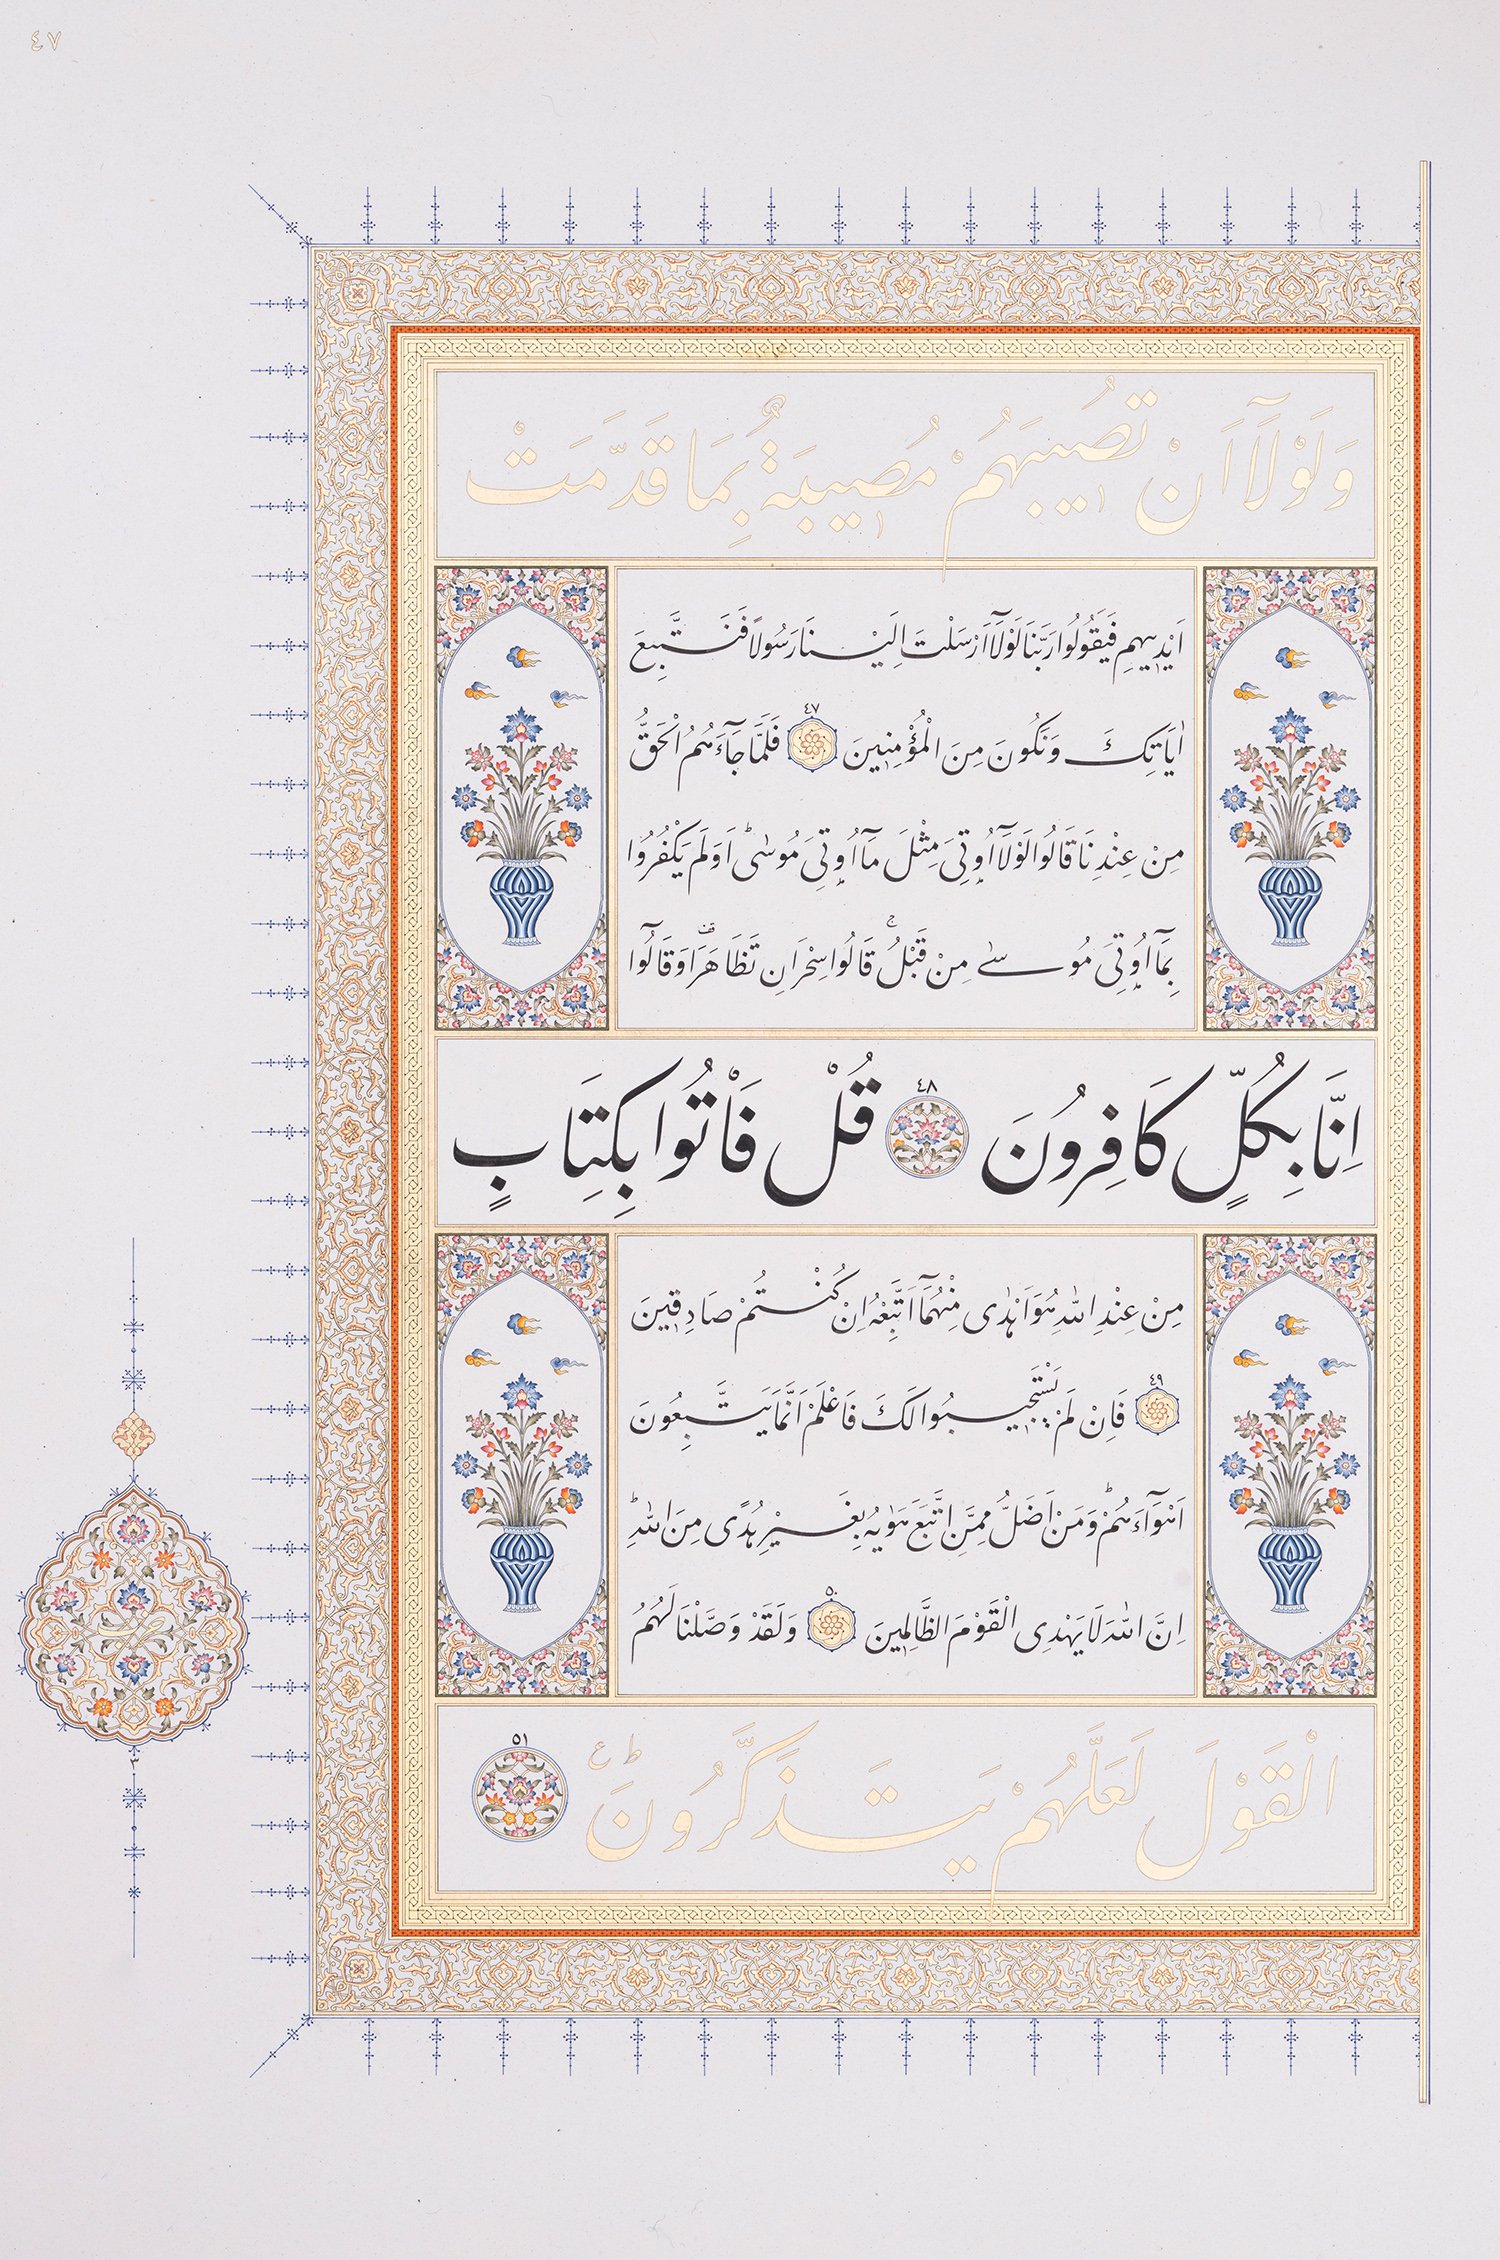 ٤٧
وَلَوْلَٓا اَنْ تُص۪يبَهُمْ مُص۪يبَةٌ بِمَا قَدَّمَتْ
اَيْد۪يهِمْ فَيَقُولُوا رَبَّنَا لَوْلَٓا اَرْسَلْتَ اِلَيْنَا رَسُولًا فَنَتَّبِعَ
اٰيَاتِكَ وَنَكُونَ مِنَ الْمُؤْمِن۪ينَ ٤٧ فَلَمَّا جَٓاءَهُمُ الْحَقُّ
مِنْ عِنْدِنَا قَالُوا لَوْلَٓا اُو۫تِيَ مِثْلَ مَٓا اُو۫تِيَ مُوسٰىۜ اَوَلَمْ يَكْفُرُوا
بِمَٓا اُو۫تِيَ مُوسٰى مِنْ قَبْلُۚ قَالُوا سِحْرَانِ تَظَاهَرَا۠ وَقَالُٓوا
اِنَّا بِكُلٍّ كَافِرُونَ ٤٨ قُلْ فَأْتُوا بِكِتَابٍ
مِنْ عِنْدِ اللّٰهِ هُوَ اَهْدٰى مِنْهُمَٓا اَتَّبِعْهُ اِنْ كُنْتُمْ صَادِق۪ينَ
٤٩ فَاِنْ لَمْ يَسْتَج۪يبُوا لَكَ فَاعْلَمْ اَنَّمَا يَتَّبِعُونَ
اَهْوَٓاءَهُمْۜ وَمَنْ اَضَلُّ مِمَّنِ اتَّبَعَ هَوٰيهُ بِغَيْرِ هُدًى مِنَ اللّٰهِۜ
اِنَّ اللّٰهَ لَا يَهْدِي الْقَوْمَ الظَّالِم۪ينَ ٥٠ وَلَقَدْ وَصَّلْنَا لَهُمُ
الْقَوْلَ لَعَلَّهُمْ يَتَذَكَّرُونَۜ ع ٥١
حزب
٣